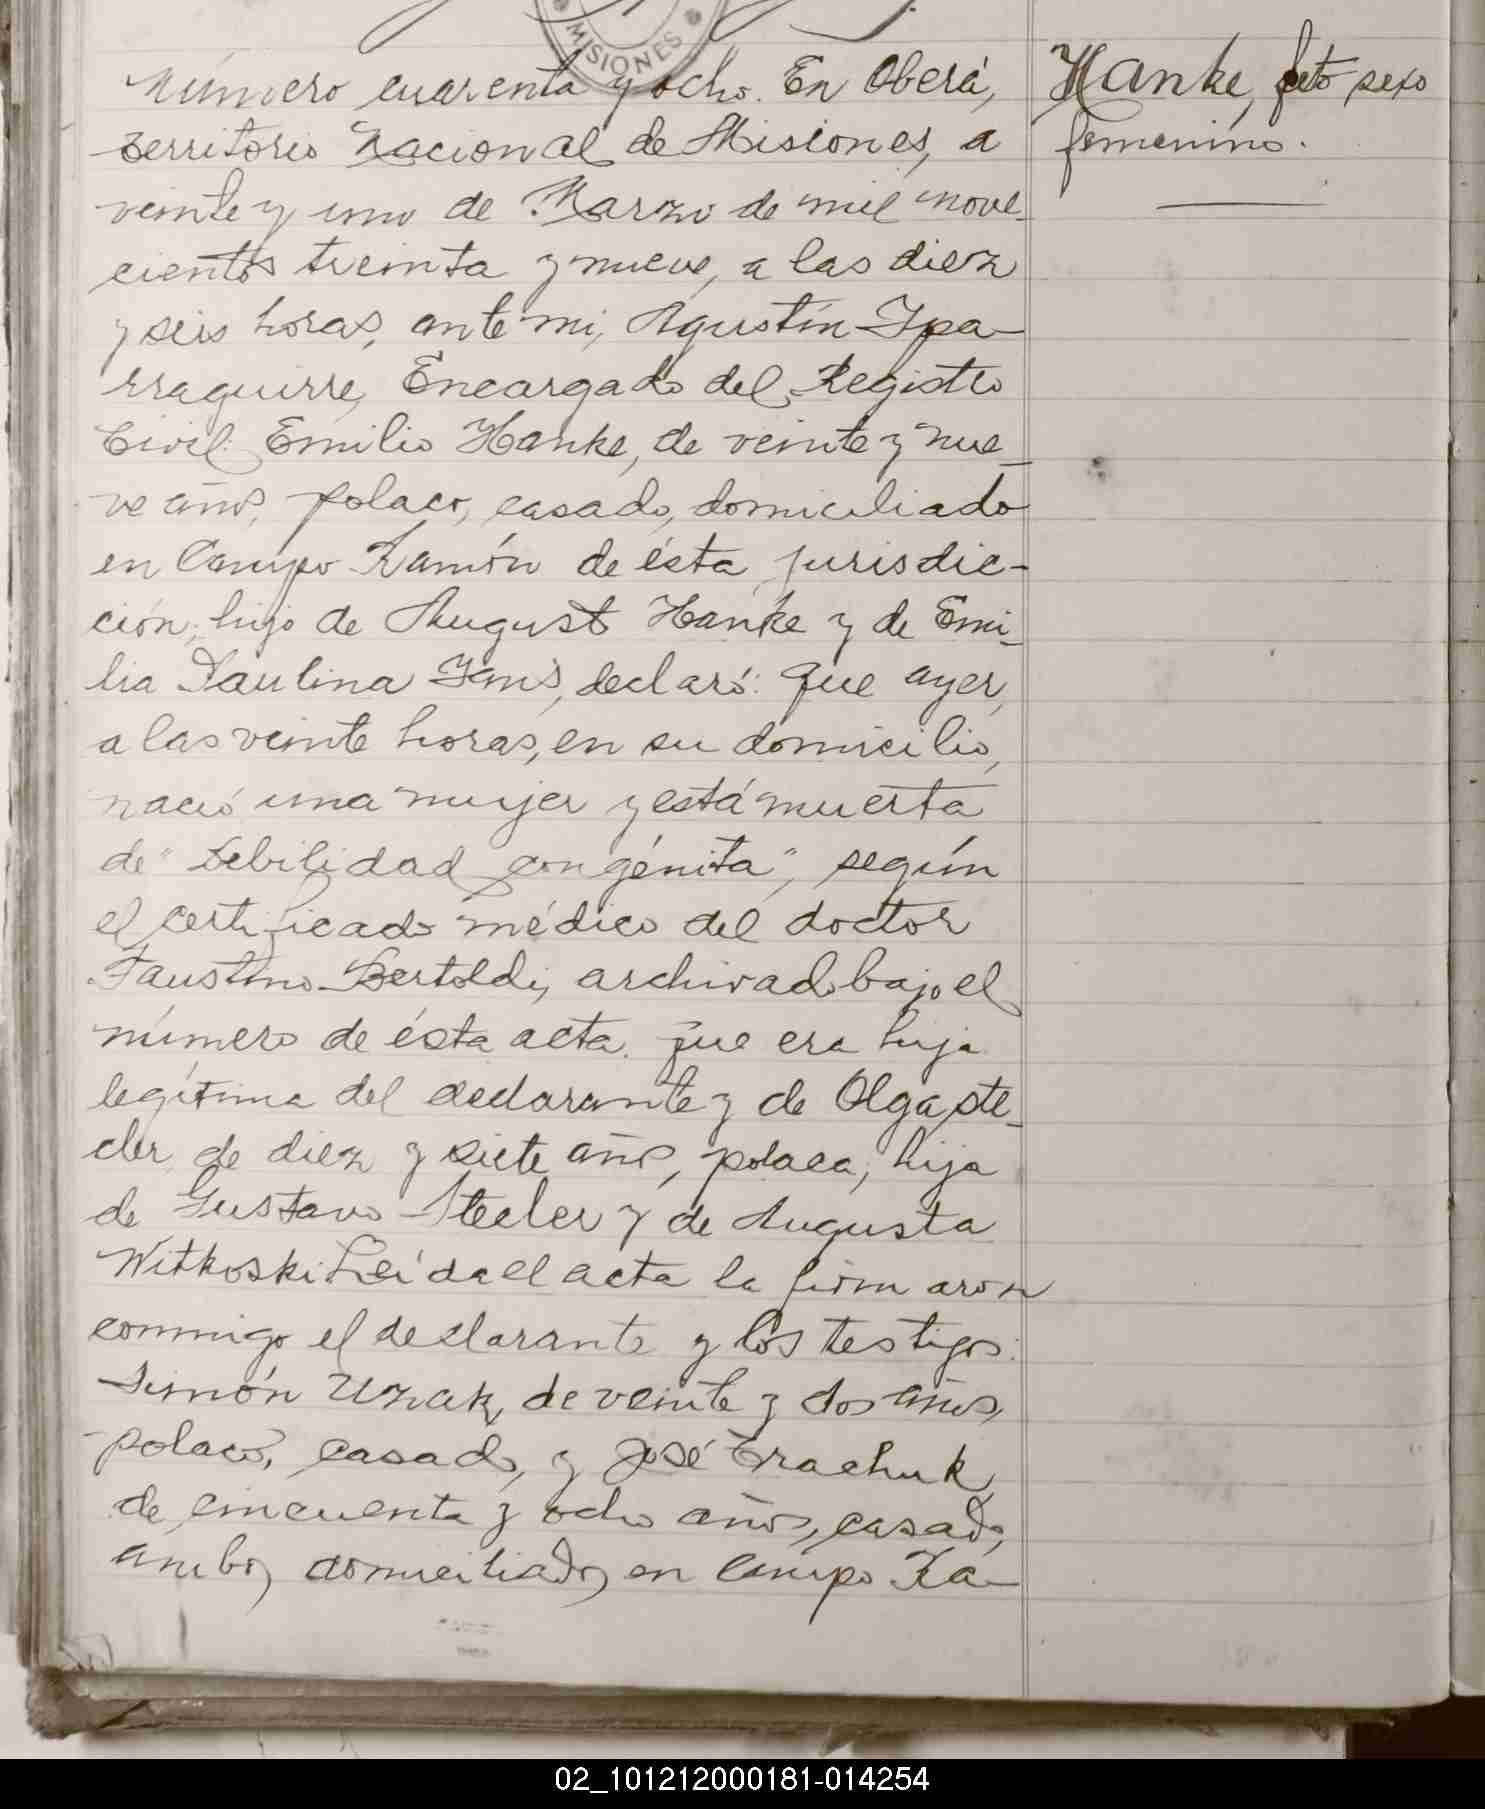 MISIONES
Número cuarenta y ocho. En Oberá,
territorio Nacional de Misiones, a
veinte y uno de Marzo de mil nove-
cientos treinta y nueve, a las diez
y seis horas, ante mi, Agustín Ypa-
rraguirre, Encargado del Registro
Civil: Emilio Hanke, de veinte y nue-
ve años, polaco, casado, domiciliado
en Campo Ramón de ésta jurisdic-
ción, hijo de August Hanke y de Emi-
lia Paulina declaró: que ayer,
a las veinte horas, en su domicilio,
nació una mujer y está muerta
de "debilidad congénita", según
el certificado médico del doctor
Faustino Bertoldi, archivado bajo el
número de ésta acta. que era hija
legítima del declarante y de Olga Ste-
cler, de diez y siete años, polaca, hija
de Gustavo Stecler y de Augusta
Witkoski. Leída el acta la firmaron
conmigo el declarante y los testigos:
Simón Uzak, de veinte y dos años,
polaco, casado, y José Trachuk,
de cincuenta y ocho años, casado,
ambos domiciliados en Campo Ra-
Hanke, feto sexo
femenino.
02_101212000181-014254